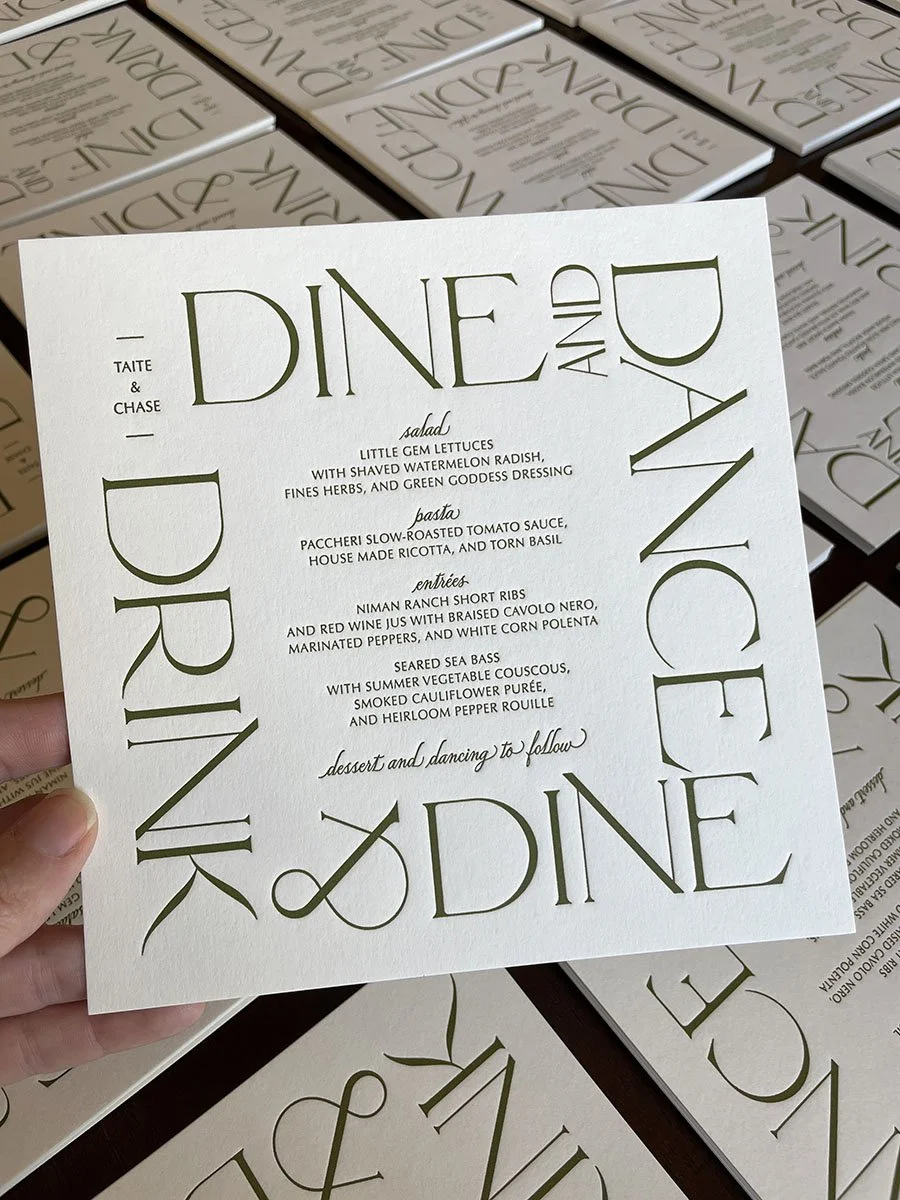 DINE AND DANCE
TAITE
&
CHASE
DRINK
& DINE
salad
LITTLE GEM LETTUCES
WITH SHAVED WATERMELON RADISH,
FINES HERBS, AND GREEN GODDESS DRESSING
pasta
PACCHERI SLOW-ROASTED TOMATO SAUCE,
HOUSE MADE RICOTTA, AND TORN BASIL
entrées
NIMAN RANCH SHORT RIBS
AND RED WINE JUS WITH BRAISED CAVOLO NERO,
MARINATED PEPPERS, AND WHITE CORN POLENTA
SEARED SEA BASS
WITH SUMMER VEGETABLE COUSCOUS,
SMOKED CAULIFLOWER PURÉE,
AND HEIRLOOM PEPPER ROUILLE
dessert and dancing to follow